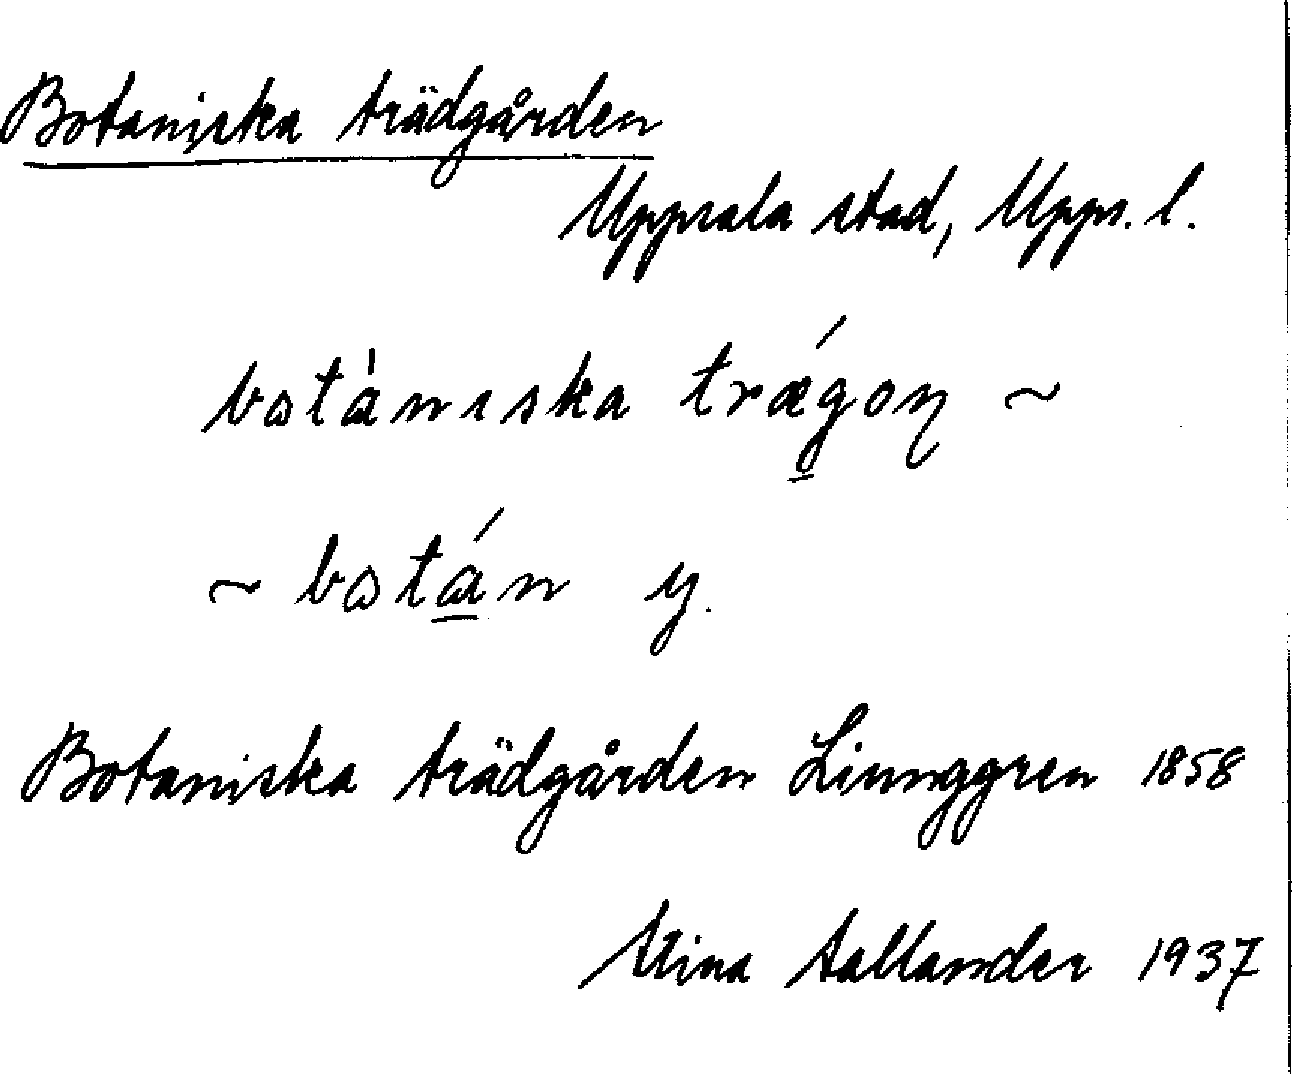 Botaniska trädgården
Uppsala stad, Upps. l.
botániska trǽgon ~
~ botán y.
Botaniska trädgården Ljunggren 1858
Stina Aallander 1937